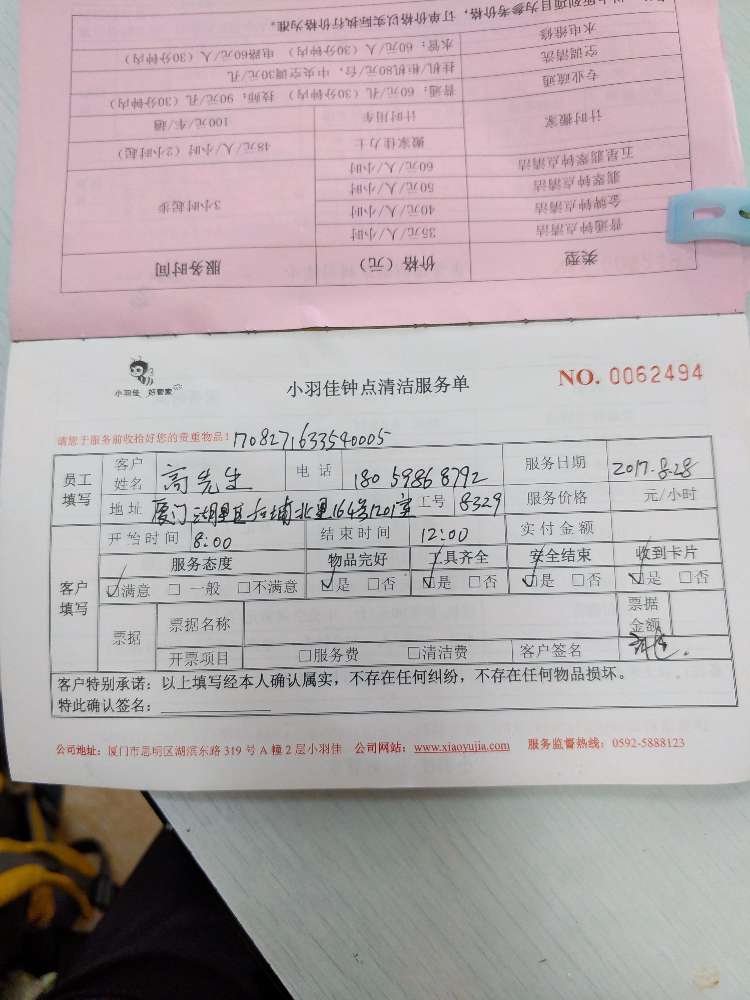 以上所列项目为参考价格，订单价格以实际执行价格为准。
水电维修 水管：60元/人（30分钟内） 电路60元/人（30分钟内）
空调清洗 挂机/柜机80元/台，中央空调30元/孔
专业疏通 普通：60元/孔（30分钟内） 技师：90元/孔（30分钟内）
计时搬家 计时用车 100元/车/趟
搬家佳力士 48元/人/小时（2小时起）
五星翡翠钟点清洁 60元/人/小时
翡翠钟点清洁 50元/人/小时 3小时起步
金牌钟点清洁 40元/人/小时
普通钟点清洁 35元/人/小时
类型 价格（元） 服务时间
小羽佳 好管家
小羽佳钟点清洁服务单
NO. 0062494
请您于服务前收拾好您的贵重物品！ 1708271633540005
员工填写 客户姓名 高先生 电话 18059868792 服务日期 2017.8.28
地址 厦门湖里区和埔北里164号1201室 工号 8329 服务价格 元/小时
开始时间 8:00 结束时间 12:00 实付金额
客户填写 服务态度 物品完好 工具齐全 安全结束 收到卡片
☑满意 □一般 □不满意 ☑是 □否 ☑是 □否 ☑是 □否 ☑是 □否
票据 票据名称 票据金额
开票项目 □服务费 □清洁费 客户签名
客户特别承诺：以上填写经本人确认属实，不存在任何纠纷，不存在任何物品损坏。
特此确认签名：
公司地址：厦门市思明区湖滨东路 319 号 A 幢 2 层小羽佳 公司网站：www.xiaoyujia.com 服务监督热线：0592-5888123